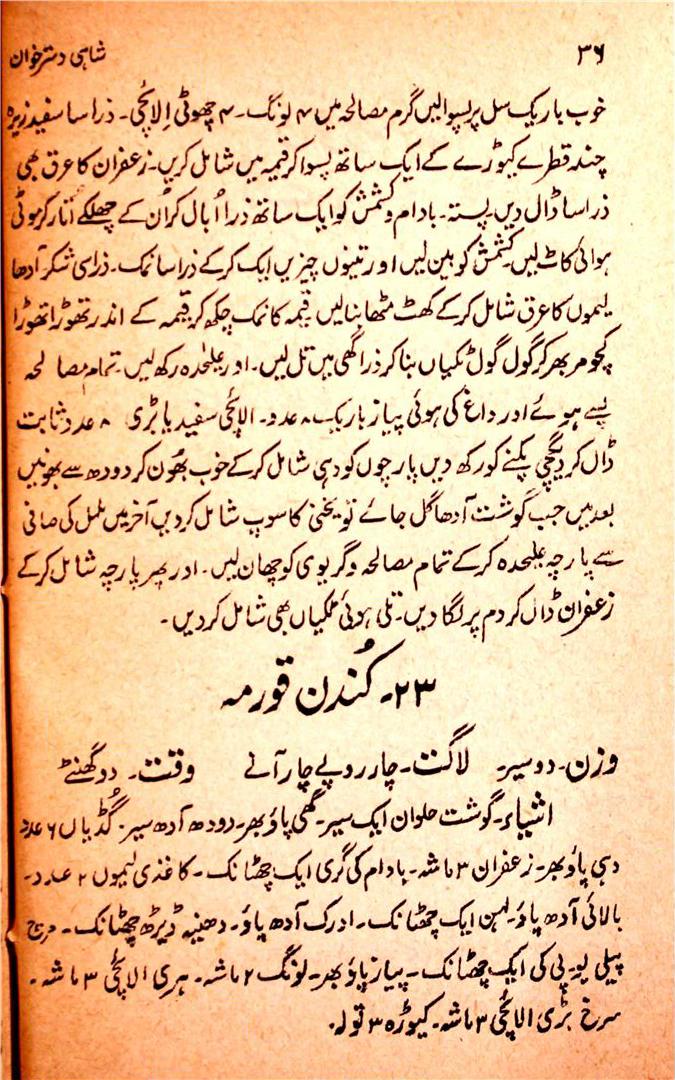 ۳۶
شاہی دسترخوان
خوب باریک سل پر پسوالیں گرم مصالحہ میں ۴ لونگ۔ ۴ چھوٹی الائچی۔ ذرا سا سفید زیرہ
چند قطرے کیوڑے کے ایک ساتھ پسوا کر قیمہ میں شامل کریں۔ زعفران کا عرق بھی
ذرا سا ڈال دیں۔ پستہ۔ بادام وکشمش کو ایک ساتھ ذرا اُبال کر اُن کے چھلکے اتار کر ہوئی
ہوائی کاٹ لیں۔ کشمش کو بین لیں اور تینوں چیزیں ایک کرکے ذرا سا نمک۔ ذرا سی شکر آدھا
لیموں کا عرق شامل کرکے کھٹ مٹھا بنالیں قیمہ کا نمک چکھ کر قیمہ کے اندر تھوڑا تھوڑا
کچومر بھر کر گول گول ٹکیاں بنا کر ذرا گھی میں تل لیں۔ اور علیحٰدہ رکھ لیں۔ تمام مصالحہ
پسے ہوئے اور داغ کی ہوئی پیاز باریک ۸ عدد۔ الائچی سفید یا بڑی ۸ عدد ثابت
ڈال کر دیگچی پکنے کو رکھ دیں پارچوں کو دہی شامل کرکے خوب بھُون کر دودھ سے بھونیں
بعد میں جب گوشت آدھا گل جائے تو یخنی کا سوپ شامل کردیں آخر میں ململ کی صافی
سے پارچہ علیحدہ کرکے تمام مصالحہ وگریوی کو چھان لیں۔ اور پھر پارچہ شامل کرکے
زعفران ڈال کر دم پر لگا دیں۔ تلی ہوئی ٹکیاں بھی شامل کردیں۔
۲۳۔ کُندن قورمہ
وزن۔ دو سیر۔ لاگت۔ چار روپے چار آنے وقت۔ دو گھنٹے
اشیاء۔ گوشت حلوان ایک سیر۔ گھی پاؤ بھر۔ دودھ آدھ سیر۔ گُڈیاں ۶ عدد
دہی پاؤ بھر۔ زعفران ۳ ماشہ۔ بادام کی گری ایک چھٹانک۔ کاغذی لیموں ۲ عدد۔
بالائی آدھ پاؤ۔ لہن ایک چھٹانک۔ ادرک آدھ پاؤ۔ دھنیہ ڈیڑھ چھٹانک۔ مرچ
پیلی یو۔پی کی ایک چھٹانک۔ پیاز پاؤ بھر۔ لونگ ۲ ماشہ۔ ہری الائچی ۳ ماشہ۔
سرخ بڑی الائچی ۳ ماشہ۔ کیوڑہ ۳ تولہ۔